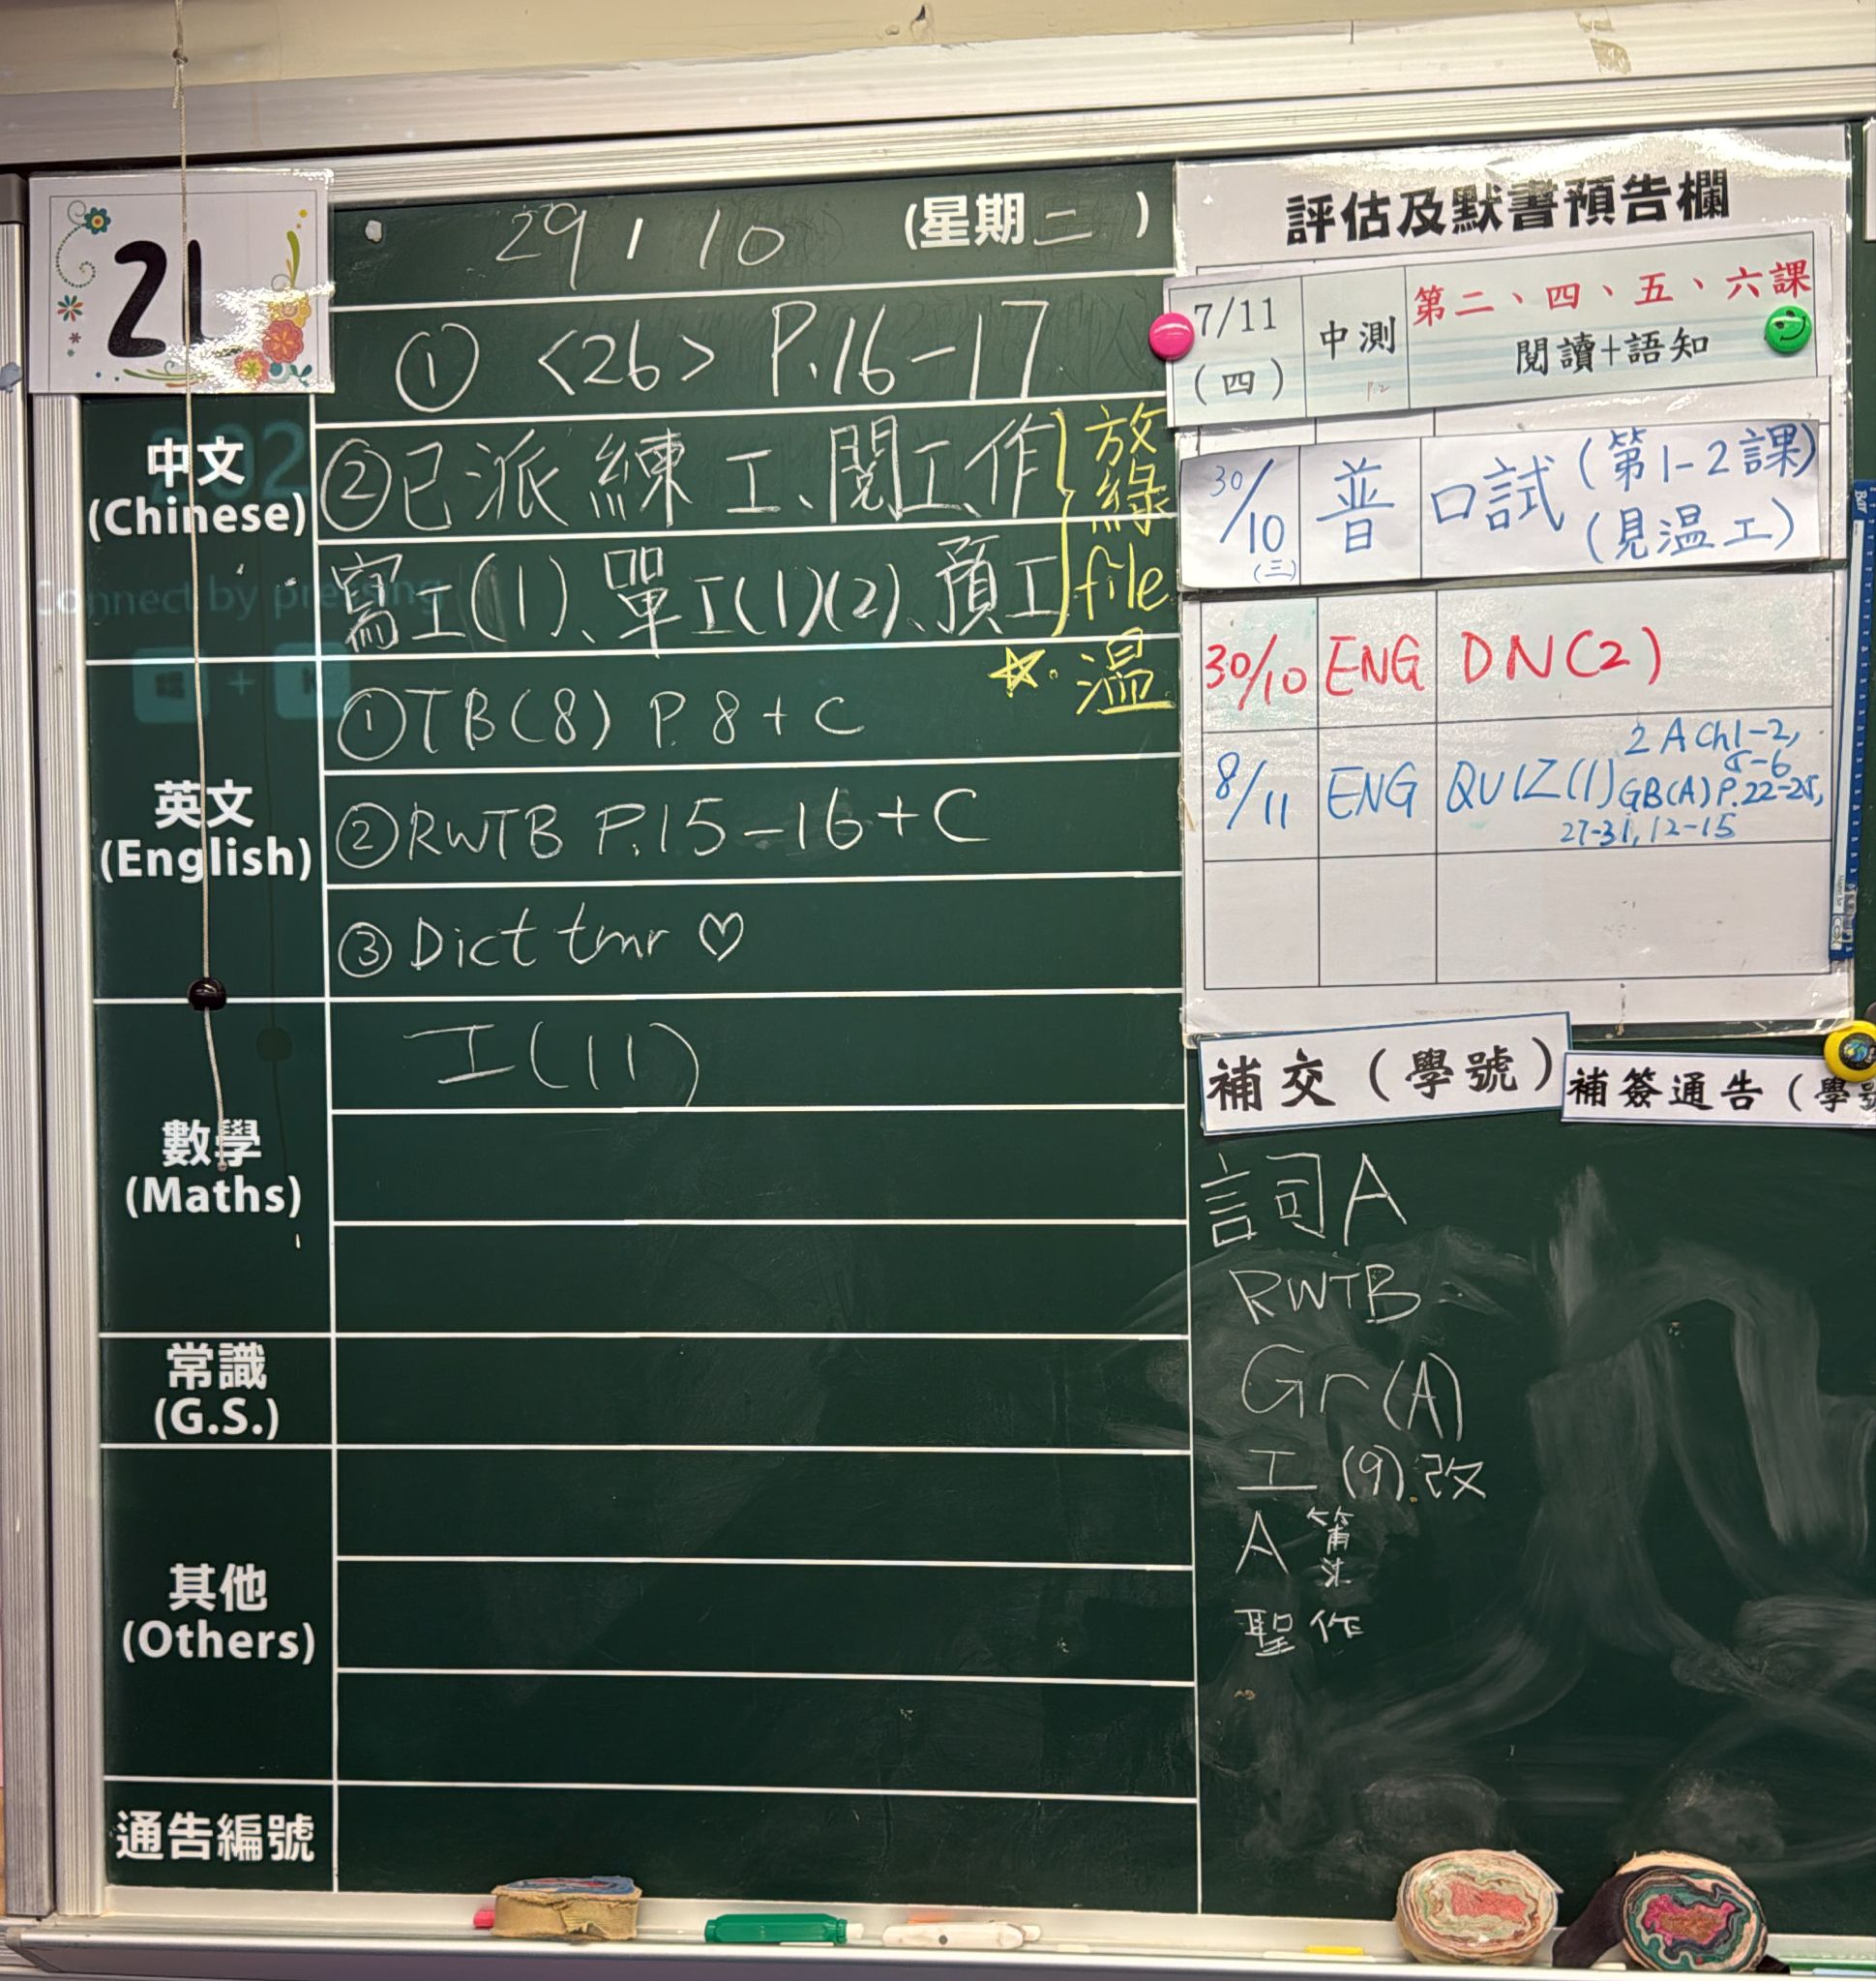 21
29 / 10 (星期二)
① <26> P.16-17
中文
(Chinese)
②已派練工、閱工、作
寫工(1)、單工(1)(2)、預工
放
綠
file
☆.温
英文
(English)
①TB(8) P.8+C
②RWTB P.15-16+C
③Dict tmr ♡
數學
(Maths)
工(11)
常識
(G.S.)
其他
(Others)
通告編號
評估及默書預告欄
7/11
(四)
中測
第二、四、五、六課
閱讀+語知
P.2
30/10
(三)
普
口試(第1-2課)
(見温工)
30/10 ENG DN(2)
8/11 ENG QUIZ(1) 2A Ch1-2,
5-6
GB(A) P.22-25,
27-31, 12-15
補交(學號)
補簽通告(學號
詞A
RWTB
Gr(A)
工(9)改
A
聖作
Connect by pressing
+